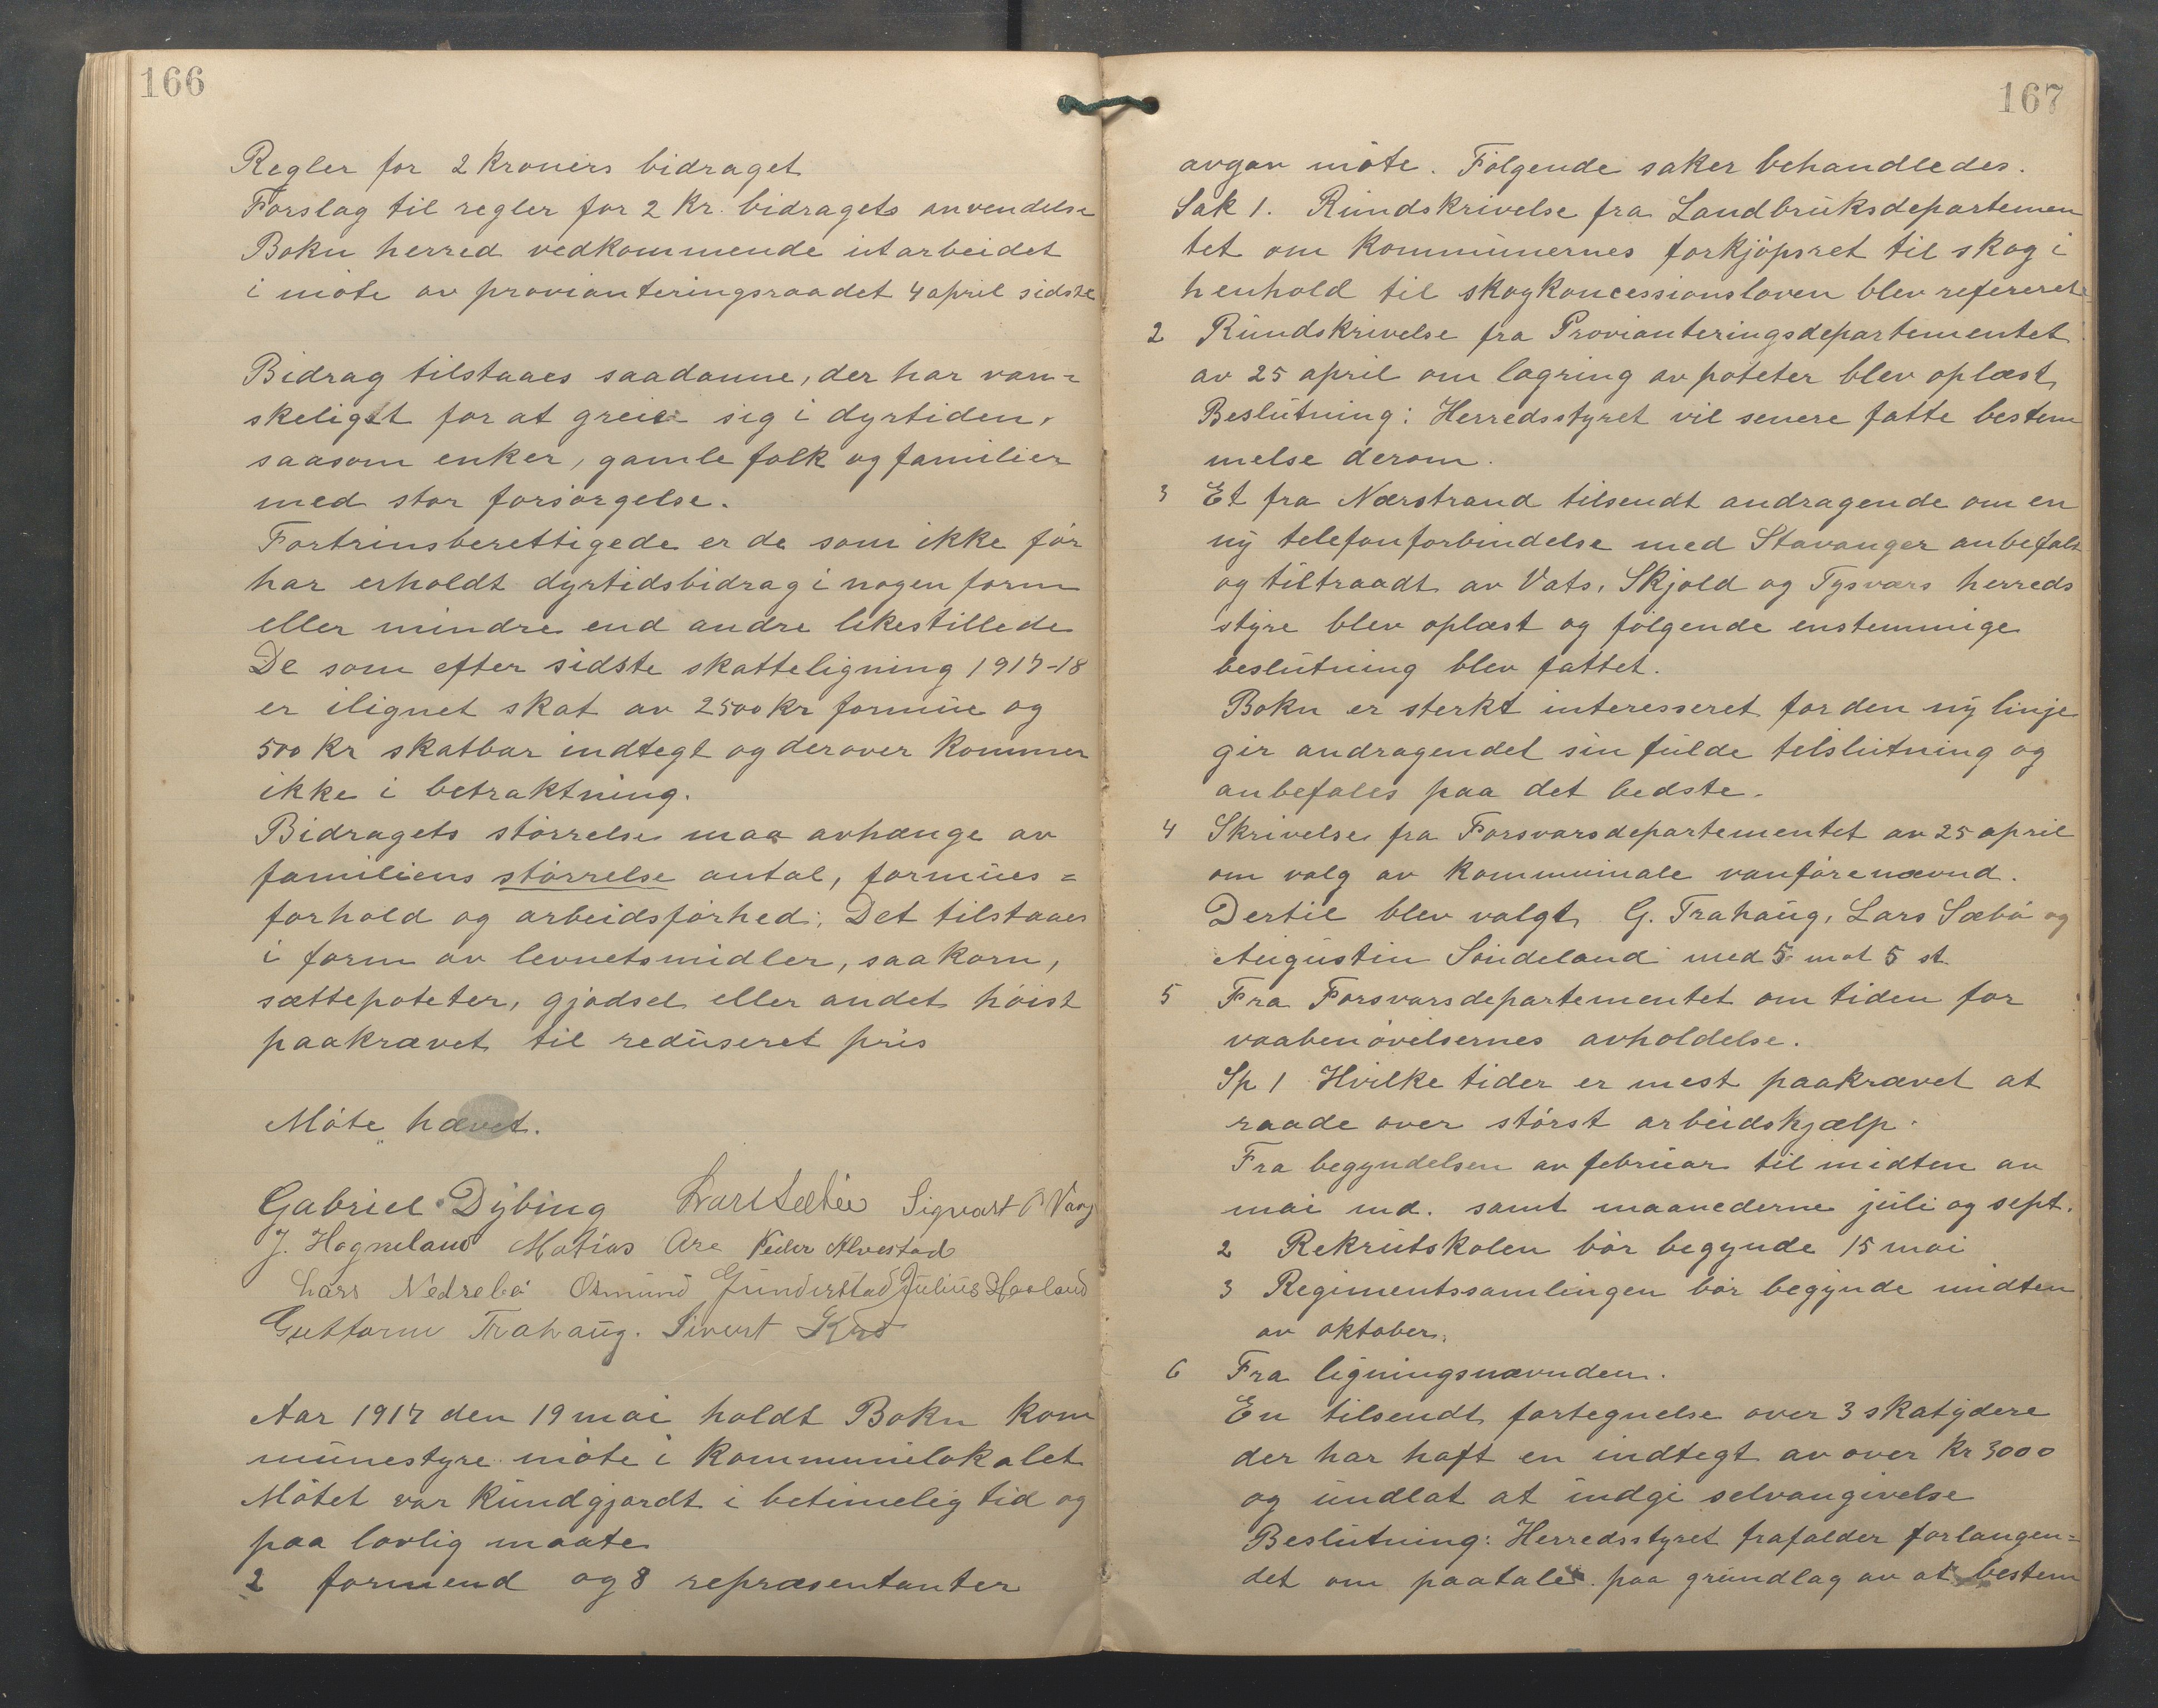 166
Regler for 2 kroners bidraget
Forslag til regler for 2 Kr. bidragets anvendelse
Bokn herred vedkommende utarbeidet
i møte av provianteringsraadet 4 april sidste
Bidrag tilstaaes saadanne, der har van=
skeligst for at greie sig i dyrtiden,
saasom enker, gamle folk og familier
med stor forsørgelse.
Fortrinsberettigede er de som ikke før
har erholdt dyrtidsbidrag i nogen form
eller mindre end andre likestillede
De som efter sidste skatteligning 1917-18
er ilignet skat av 2500 kr formue og
500 kr skatbar indtegt og derover kommer
ikke i betraktning.
Bidragets størrelse maa avhænge av
familiens størrelse antal, formues=
forhold og arbeidsførhed. Det tilstaaes
i form av levnetsmidler, saakorn,
sættepoteter, gjødsel eller andet høist
paakrævet til reduseret pris
Møte hævet.
Gabriel Dybing Lars Sæbø Sigvart P Vaag
J. Hogneland Matias Are Peder Alvestad
Lars Nedrebø Osmund Gunderstad Julius Haaland
Guttorm Trahaug. Sivert Krø
Aar 1917 den 19 mai holdt Bokn kom
munestyre møte i kommunelokalet
Møtet var kundgjordt i betimelig tid og
paa lovlig maate
2 formend og 8 repræsentanter
167
avgav møte. Følgende saker behandledes.
Sak 1. Rundskrivelse fra Landbruksdepartemen
tet om kommunernes forkjøpsret til skog i
henhold til skogkoncessionsloven blev refereret
2 Rundskrivelse fra Provianteringsdepartementet
av 25 april om lagring av poteter blev oplæst,
Beslutning: Herredsstyret vil senere fatte bestem
melse derom.
3 Et fra Nærstrand tilsendt andragende om en
ny telefonforbindelse med Stavanger anbefalt
og tiltraadt av Vats, Skjold og Tysværs herreds
styre blev oplæst og følgende enstemmige
beslutning blev fattet.
Bokn er sterkt interesseret for den ny linje
gir andragendet sin fulde tilslutning og
anbefales paa det bedste.
4 Skrivelse fra Forsvarsdepartementet av 25 april
om valg av kommunale vanførenævnd.
Dertil blev valgt G. Trahaug, Lars Sæbø og
Augustin Sundeland med 5 mot 5 st
5 Fra Forsvarsdepartementet om tiden for
vaabenøvelsernes avholdelse.
Sp 1 Hvilke tider er mest paakrævet at
raade over størst arbeidshjælp.
Fra begyndelsen av februar til midten av
mai md. samt maanederne juli og sept.
2 Rekrutskolen bør begynde 15 mai
3 Regimentssamlingen bør begynde midten
av oktober.
6 Fra ligningsnævnden.
En tilsendt fortegnelse over 3 skatydere
der har haft en indtegt av over Kr 3000
og undlat at indgi selvangivelse
Beslutning: Herredsstyret frafalder forlangen=
det om paatale paa grundlag av at bestem